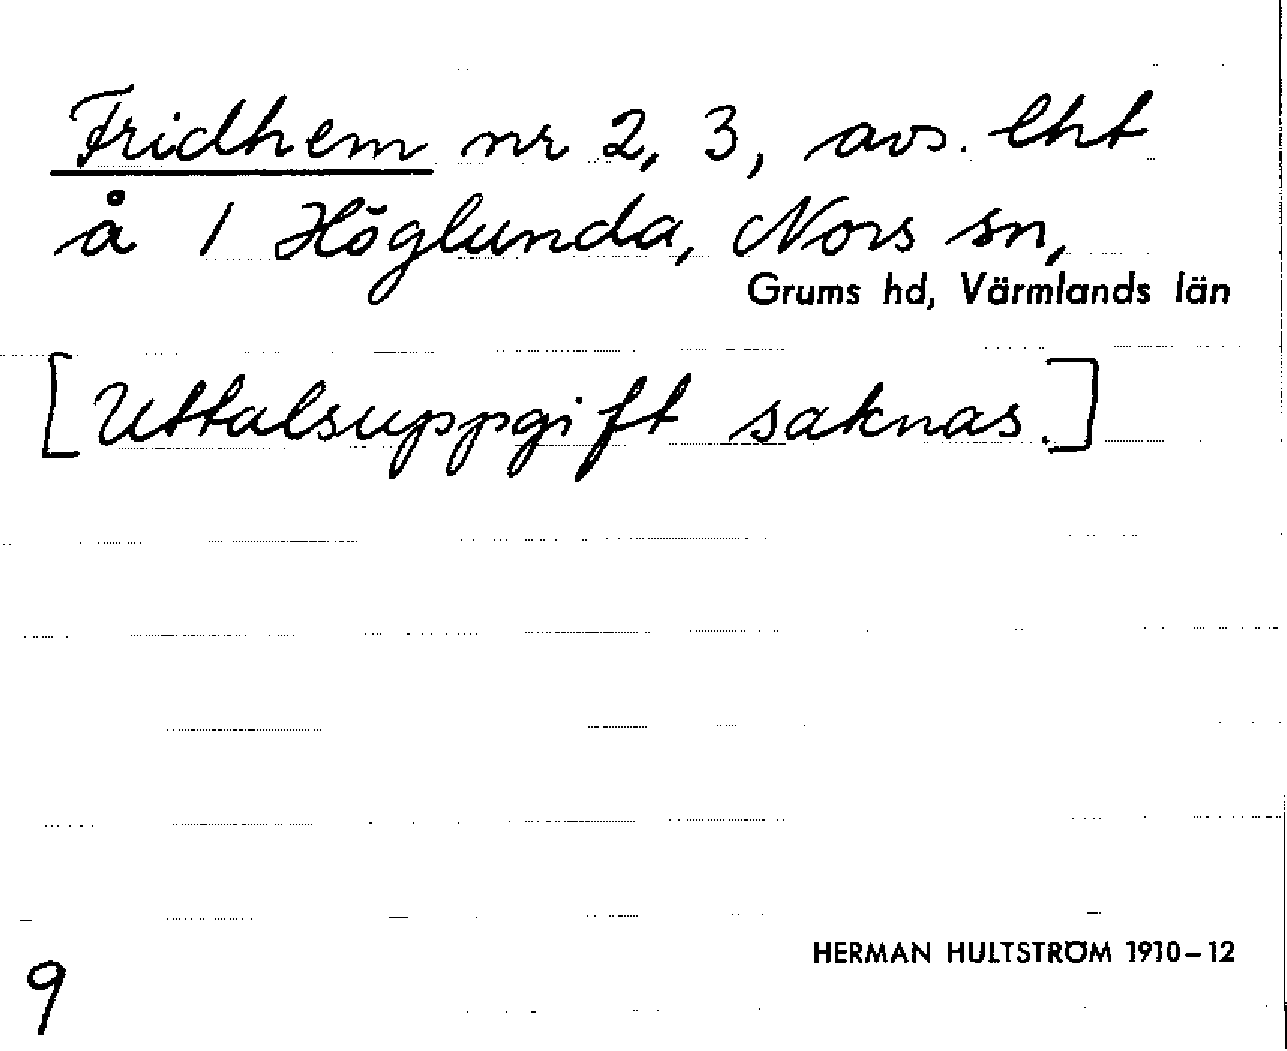 Fridhem nr 2, 3, avs. lht
å 1 Höglunda, Nors sn,
Grums hd, Värmlands län
[Uttalsuppgift saknas.]
HERMAN HULTSTRÖM 1910–12
9